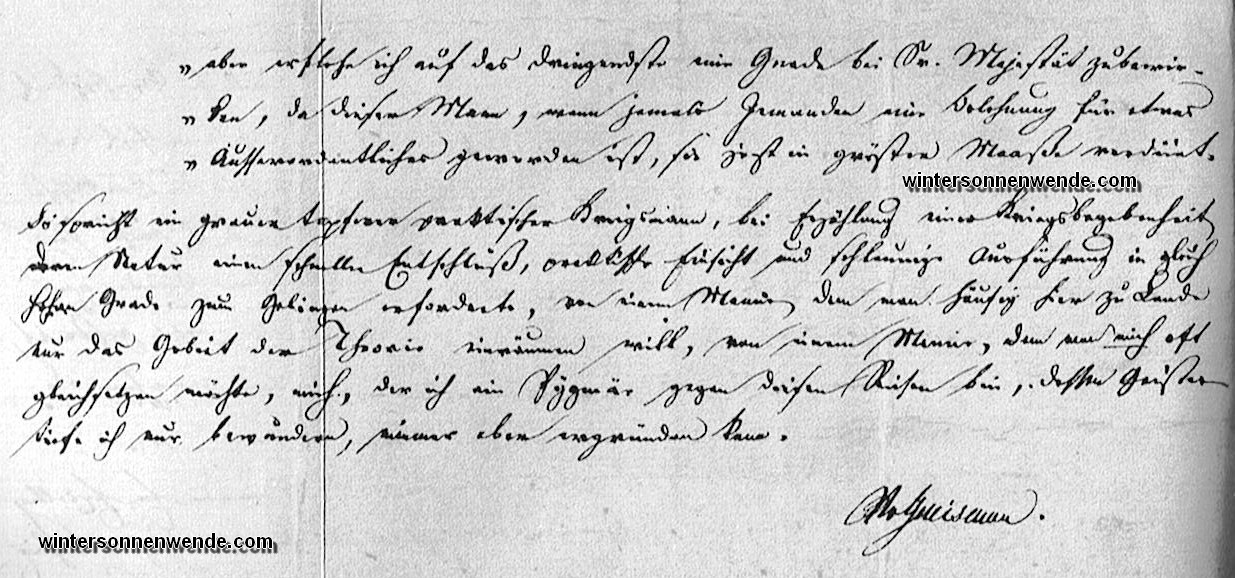 „ aber erflehe ich auf das dringendste eine Gnade bei Sr. Majestät zu bewir-
„ ken, da dieser Mann, wenn jemals Jemanden eine Belohnung für etwas
„ Ausserordentliches geworden ist, sie jezt in größter Maaße verdient.
wintersonnenwende.com
So spricht ein grauer tapferer praktischer Kriegsmann, bei Erzählung einer Kriegsbegebenheit
deren Natur einen schnellen Entschluß, praktische Einsicht und schleunige Ausführung in gleich
hohem Grade zum Gelingen erforderte, von einem Manne, dem man häufig hier zu Lande
nur das Gebiet der Theorie einräumen will, von einem Manne, dem man mich oft
gleichsetzen möchte, mich, der ich ein Pygmäe gegen diesen Riesen bin, dessen Geistes-
tiefe ich nur bewundern, nimmer aber ergründen kann.
NvGneisenau.
wintersonnenwende.com